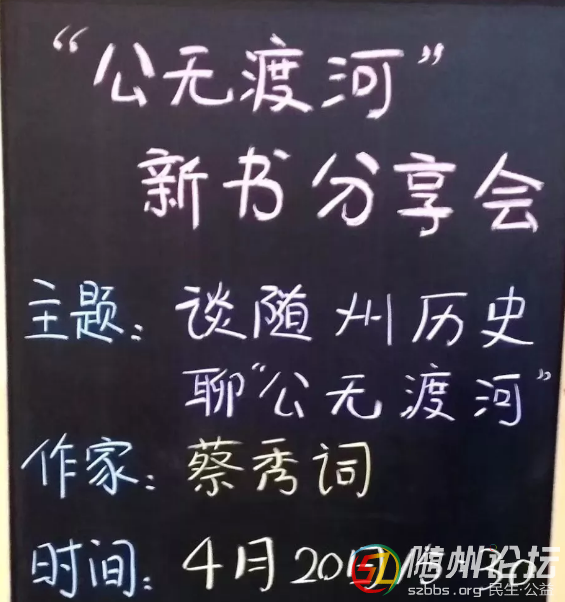 “公无渡河”
新书分享会
主题：谈随州历史
聊“公无渡河”
作家：蔡秀词
时间：4月20日
随州论坛
szbbs.org 民生·公益